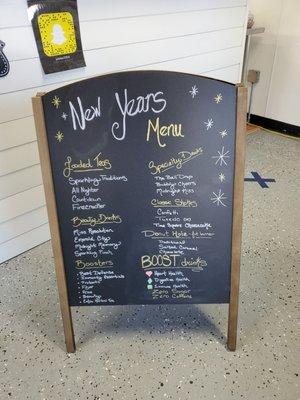 New Years
Menu
Loaded Teas
Sparkling Traditions
All Nighter
Countdown
Firecracker
Beauty Drinks
Miss Resolution
Emerald City
Midnight Mommy
Sparkling Peach
Boosters
Best Defense
Immunity Essential
Probiotic
Fiber
Aloe
Specialty Drinks
The Ball Drop
Bubbly Cheers
Midnight Kiss
Classic Shakes
Confetti
Tuxedo
Times Square Cheesecake
Donut Hole
Traditional
Salted Caramel
Chocolate
BOOST drinks
Heart Health
Digestive Health
Immune Health
Zero Sugar
Zero Caffeine